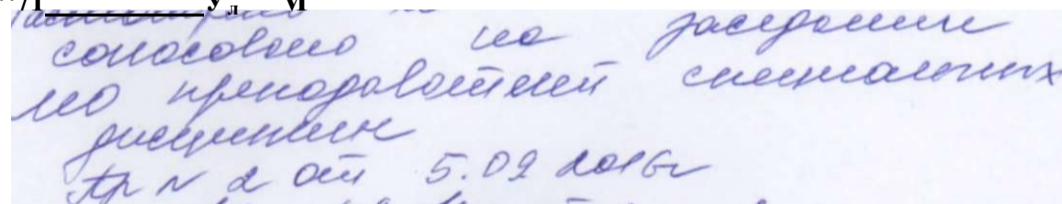 согласовано на заседании
МО преподавателей специальных
дисциплин
Пр N 2 от 5.09 2016г